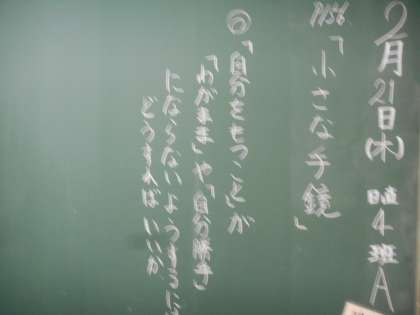 2月21日(木) 日直 4班 A
P.156 「小さな手鏡」
◎「自分をもつこと」が
「わがまま」や「自分勝手」
にならないようするには
どうすれば いいか。